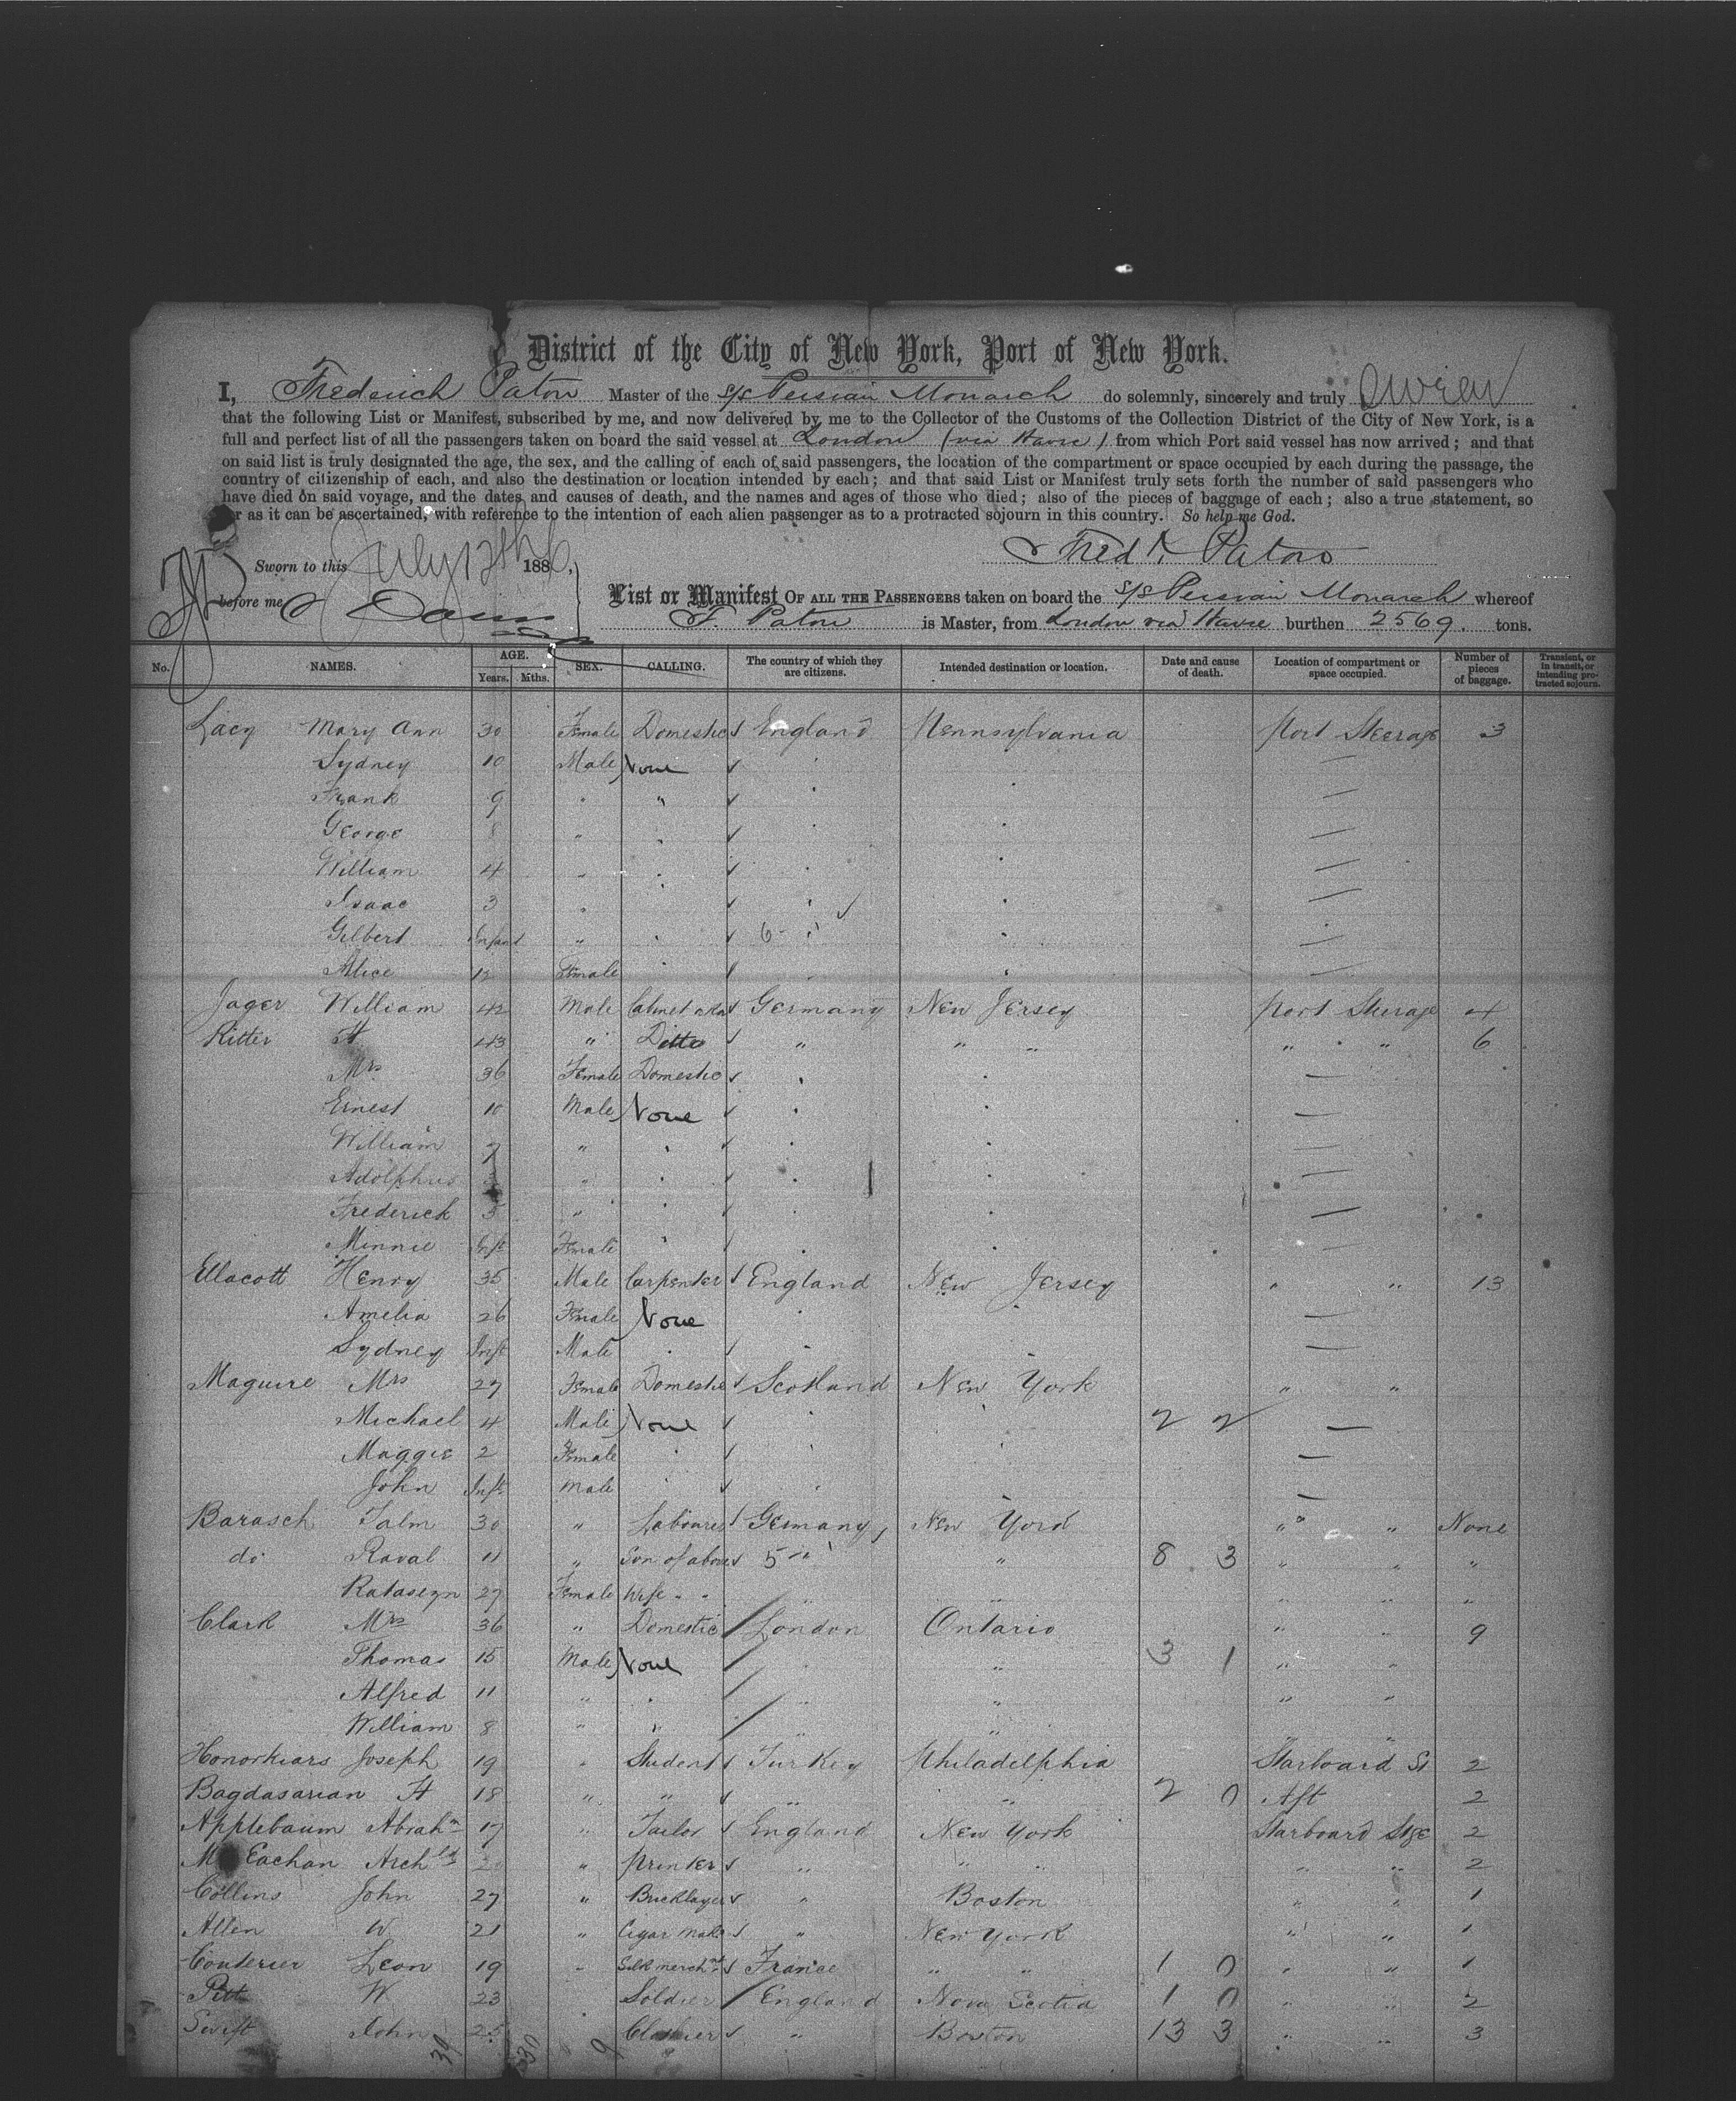 District of the City of New York, Port of New York.
I, Frederick Paton Master of the s/s Persian Monarch do solemnly, sincerely and truly swear
that the following List or Manifest, subscribed by me, and now delivered by me to the Collector of the Customs of the Collection District of the City of New York, is a
full and perfect list of all the passengers taken on board the said vessel at London (via Havre) from which Port said vessel has now arrived; and that
on said list is truly designated the age, the sex, and the calling of each of said passengers, the location of the compartment or space occupied by each during the passage, the
country of citizenship of each, and also the destination or location intended by each; and that said List or Manifest truly sets forth the number of said passengers who
have died on said voyage, and the dates and causes of death, and the names and ages of those who died; also of the pieces of baggage of each; also a true statement, so
r as it can be ascertained, with reference to the intention of each alien passenger as to a protracted sojourn in this country. So help me God.
Fredk Paton
Sworn to this July 12th 1886,
before me
List or Manifest OF ALL THE PASSENGERS taken on board the s/s Persian Monarch whereof
F. Paton is Master, from London via Havre burthen 2569. tons.
No. NAMES. AGE. Years. Mths. SEX. CALLING. The country of which they are citizens. Intended destination or location. Date and cause of death. Location of compartment or space occupied. Number of pieces of baggage. Transient, or in transit, or intending protracted sojourn.
Lacy Mary Ann 30 Female Domestic England Pennsylvania Port Steerage 3
Sydney 10 Male None
Frank 9 " "
George 8 "
William 4 "
Isaac 3 "
Gilbert Infant " 6
Alice 12 Female
Jager William 42 Male Cabinet Germany New Jersey Port Steerage 4
Ritter H 43 " Ditto " " " " " 6
Mrs 36 Female Domestic "
Ernest 10 Male None
William 7 "
Adolphus "
Frederick 3 "
Minnie Inft Female
Ellacott Henry 35 Male Carpenter England New Jersey " " 13
Amelia 26 Female None
Sydney Inft Male
Maguire Mrs 27 Female Domestic Scotland New York " "
Michael 4 Male None 2 2
Maggie 2 Female
John Inft Male
Barasch Talm 30 " Labourer Germany, New York " " None
do Raval 11 " Son of above 5 " " 8 3 " " "
Rataseyn 27 Female Wife " " " " " " "
Clark Mrs 36 " Domestic London Ontario " " 9
Thomas 15 Male None " 3 1 " "
Alfred 11 " " " " " "
William 8 " " " " " "
Honorkiars Joseph 19 " Student Turkey Philadelphia Starboard St 2
Bagdasarian H 18 " " " " 2 0 Aft 2
Applebaum Abrahm 17 " Tailor England New York Starboard Stge 2
Mc Eachan Archld " Printer " " " " " 2
Collins John 27 " Bricklayer " Boston " " 1
Allen W 21 " Cigar Make " New York " " 1
Couterier Leon 19 " Silk mercht France " " 1 0 " " 1
Pitt W 23 Soldier England Nova Scotia 1 0 " " 2
Swift John 25 " Boston 13 3 " " 3
39 9